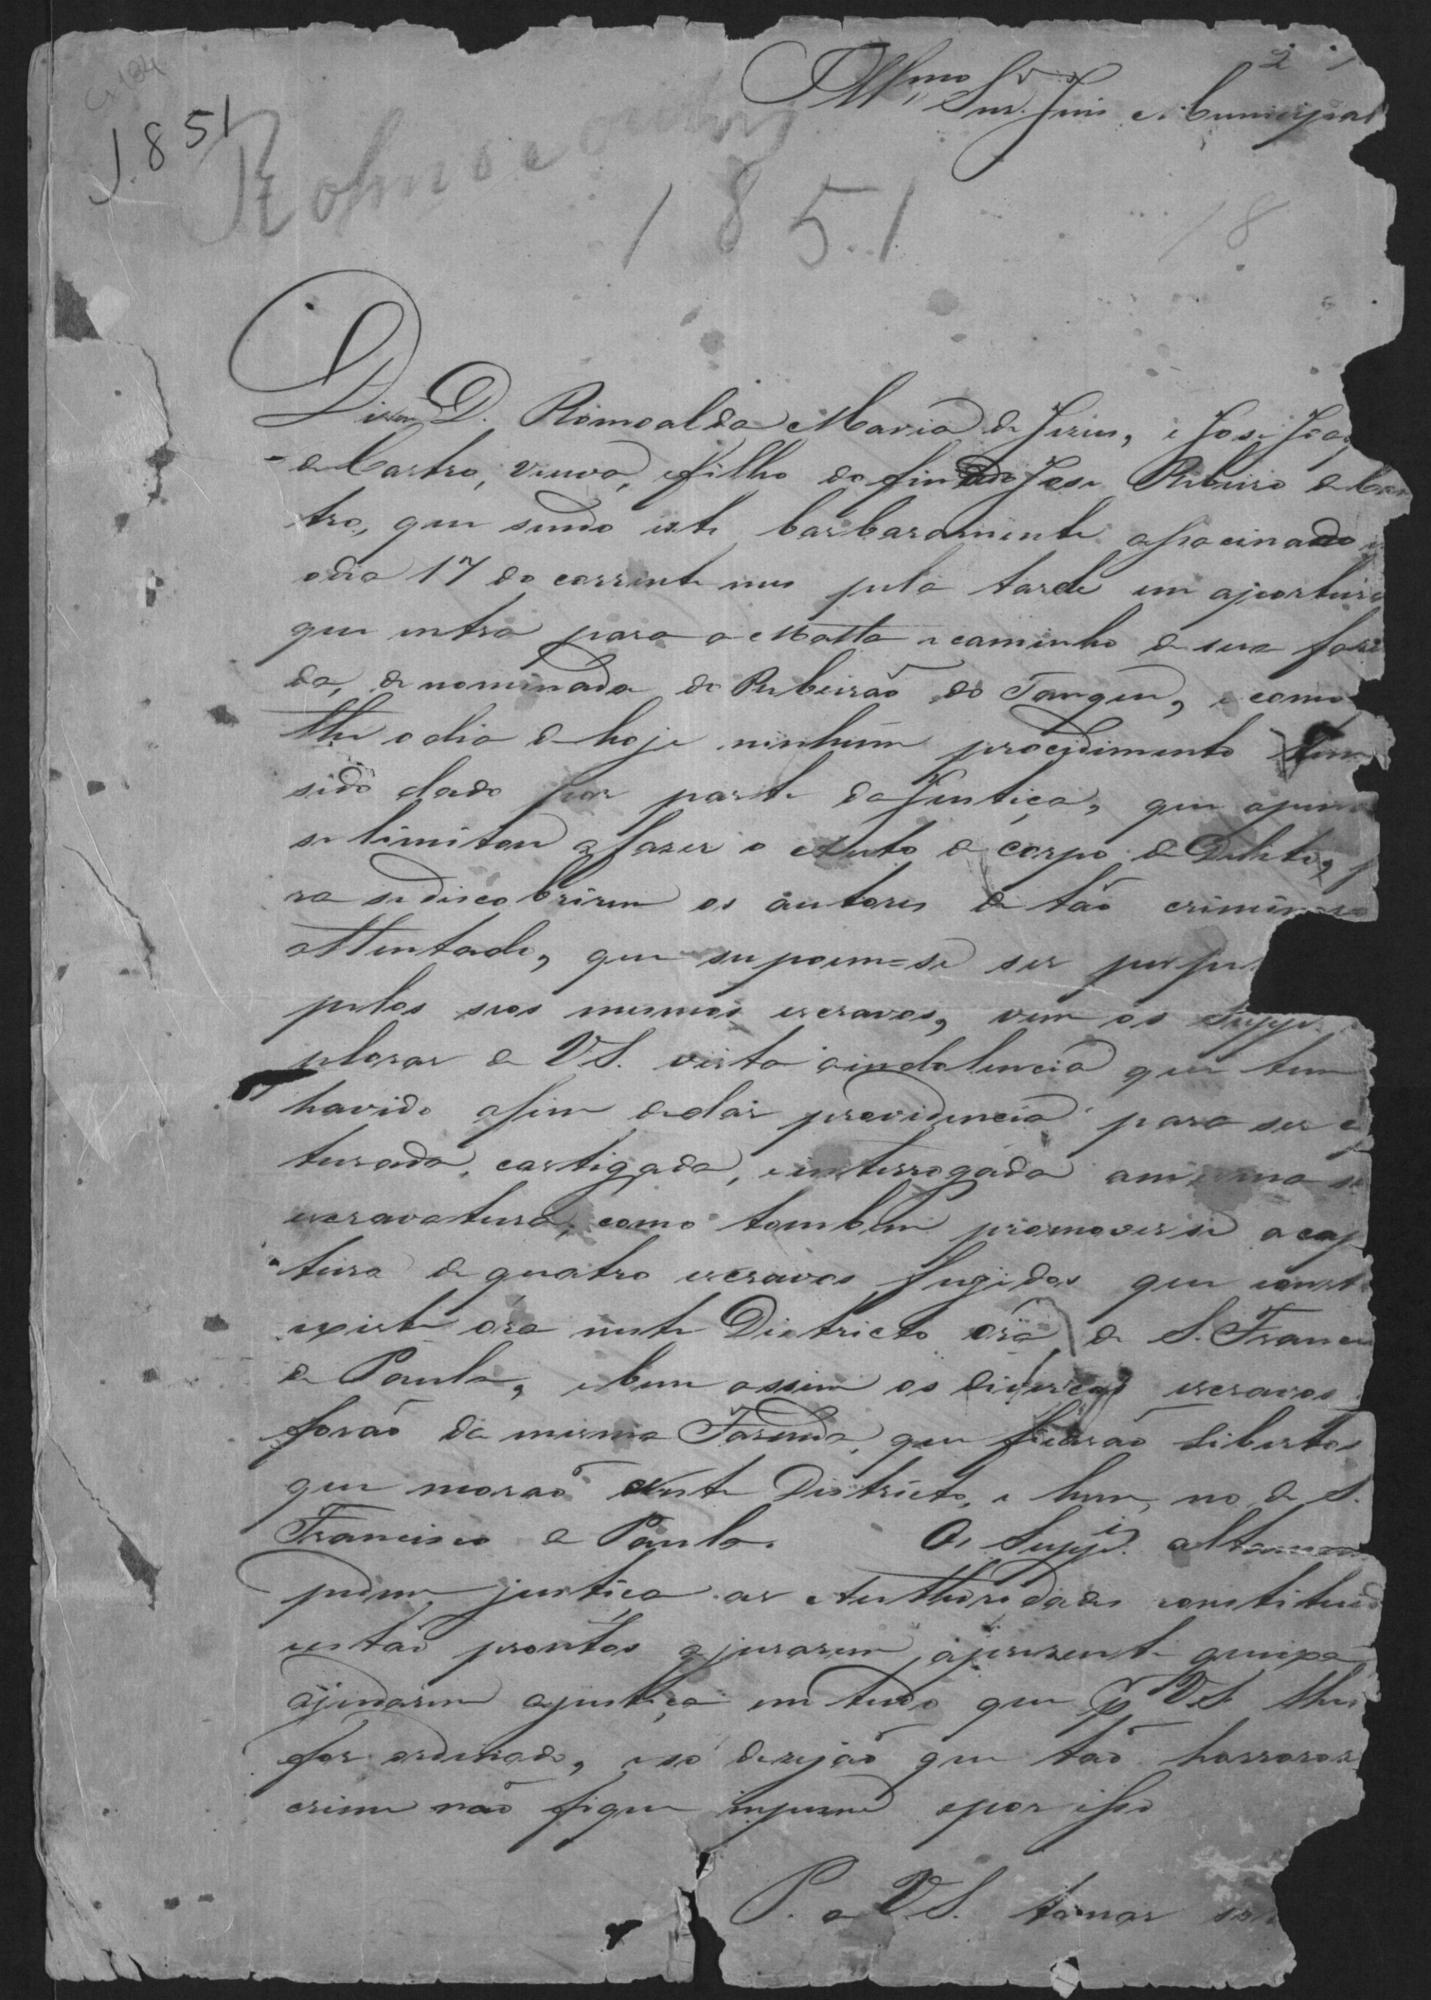 2
Illmo Snr. Juis Municipal
1851
1851
18
Dizem D. Romoalda Maria de Jezus, e Jose Joaq
de Castro, viuva, e filho do finado Jose Ribeiro de Cas
tro, que sendo este barbaramente assacinado
odia 17 do corrente mes pela tarde em aporteir
que entra para a Matta e caminho de sua fase
da, denominada do Ribeirão do Tangue, e como
the odia de hoje ninhum procedimento tem
sido dado por parte da Justiça, que apen
se limitou a fazer o Auto de corpo de Delito, p
ra se discobrirem os autores de tão criminozo
attentado, que supoem=se ser perpet
pelos seos mesmos escravos, vem os Suppe
plorar a V.S. vista aindolencia que tem
havido afim de dar providencia para ser c
turada, castigada, e interrogada amesma
escravatura, como tambem promoverse acap
tura de quatro escravos fugidos que const
existe ora neste Districto ora de S. Franci
de Paula, e bem assim os diverços escravos
forão da mesma Fazenda, que ficarão libertos
que morão neste Districto, e hum, no de S.
Francisco de Paula. Os Suppes. altamen
pedem justiça as Authoridades constituid
estão prontos ajurarem, apresente queixa
ajudarem ajustiça em tudo que por V.S. lhes
for ordenado, e só dezejão que tão horroroz
crime não fique impune epor isso
P. a V.S. tomar